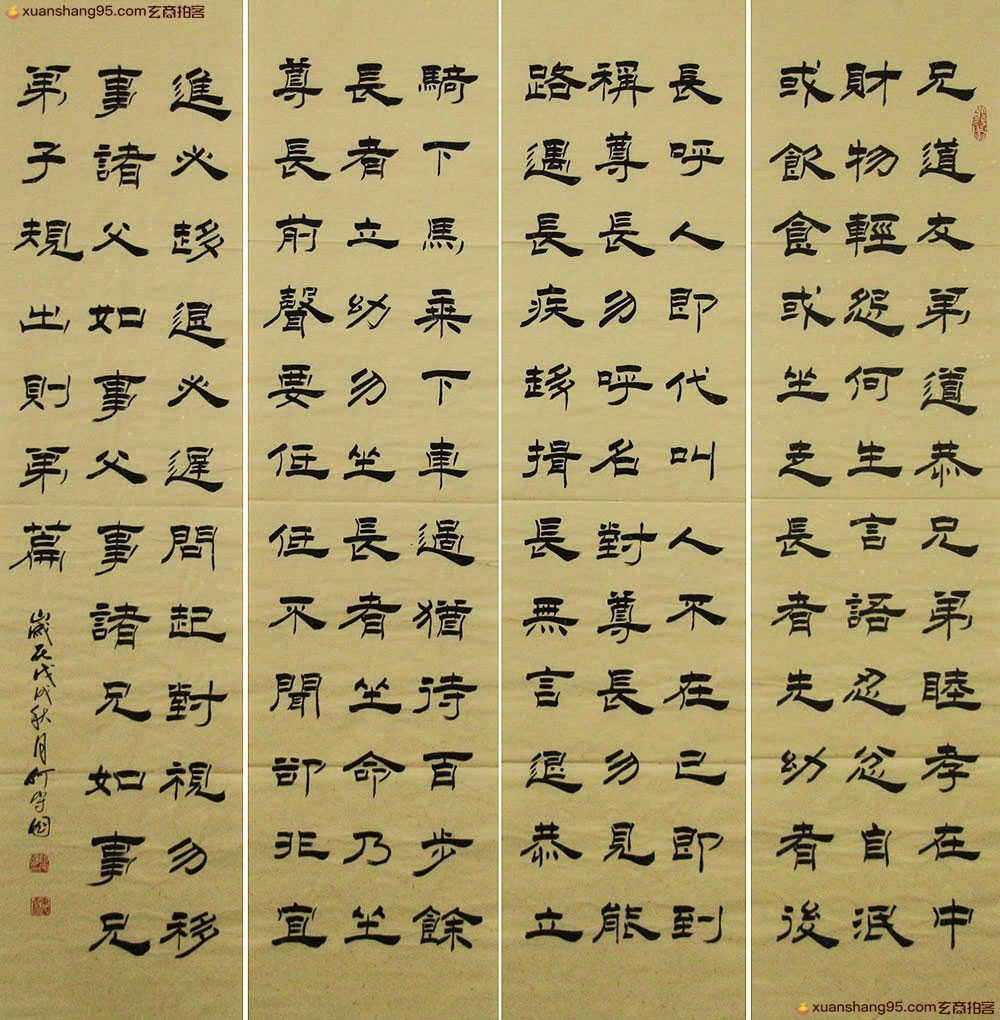 xuanshang95.com玄商拍客
兄道友弟道恭兄弟睦孝在中
財物輕怨何生言語忍忿自泯
或飲食或坐走長者先幼者後
長呼人即代叫人不在己即到
稱尊長勿呼名對尊長勿見能
路遇長疾趍揖長無言退恭立
騎下馬乘下車過猶待百步餘
長者立幼勿坐長者坐命乃坐
尊長前聲要低低不聞卻非宜
進必趍退必遲問起對視勿移
事諸父如事父事諸兄如事兄
弟子規出則弟篇
歲在戊戌秋月
xuanshang95.com玄商拍客